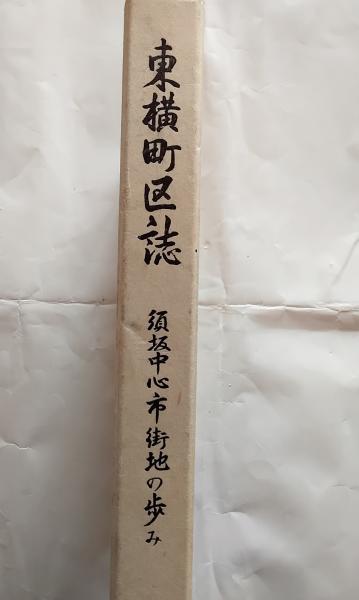 東横町区誌
須坂中心市街地の歩み